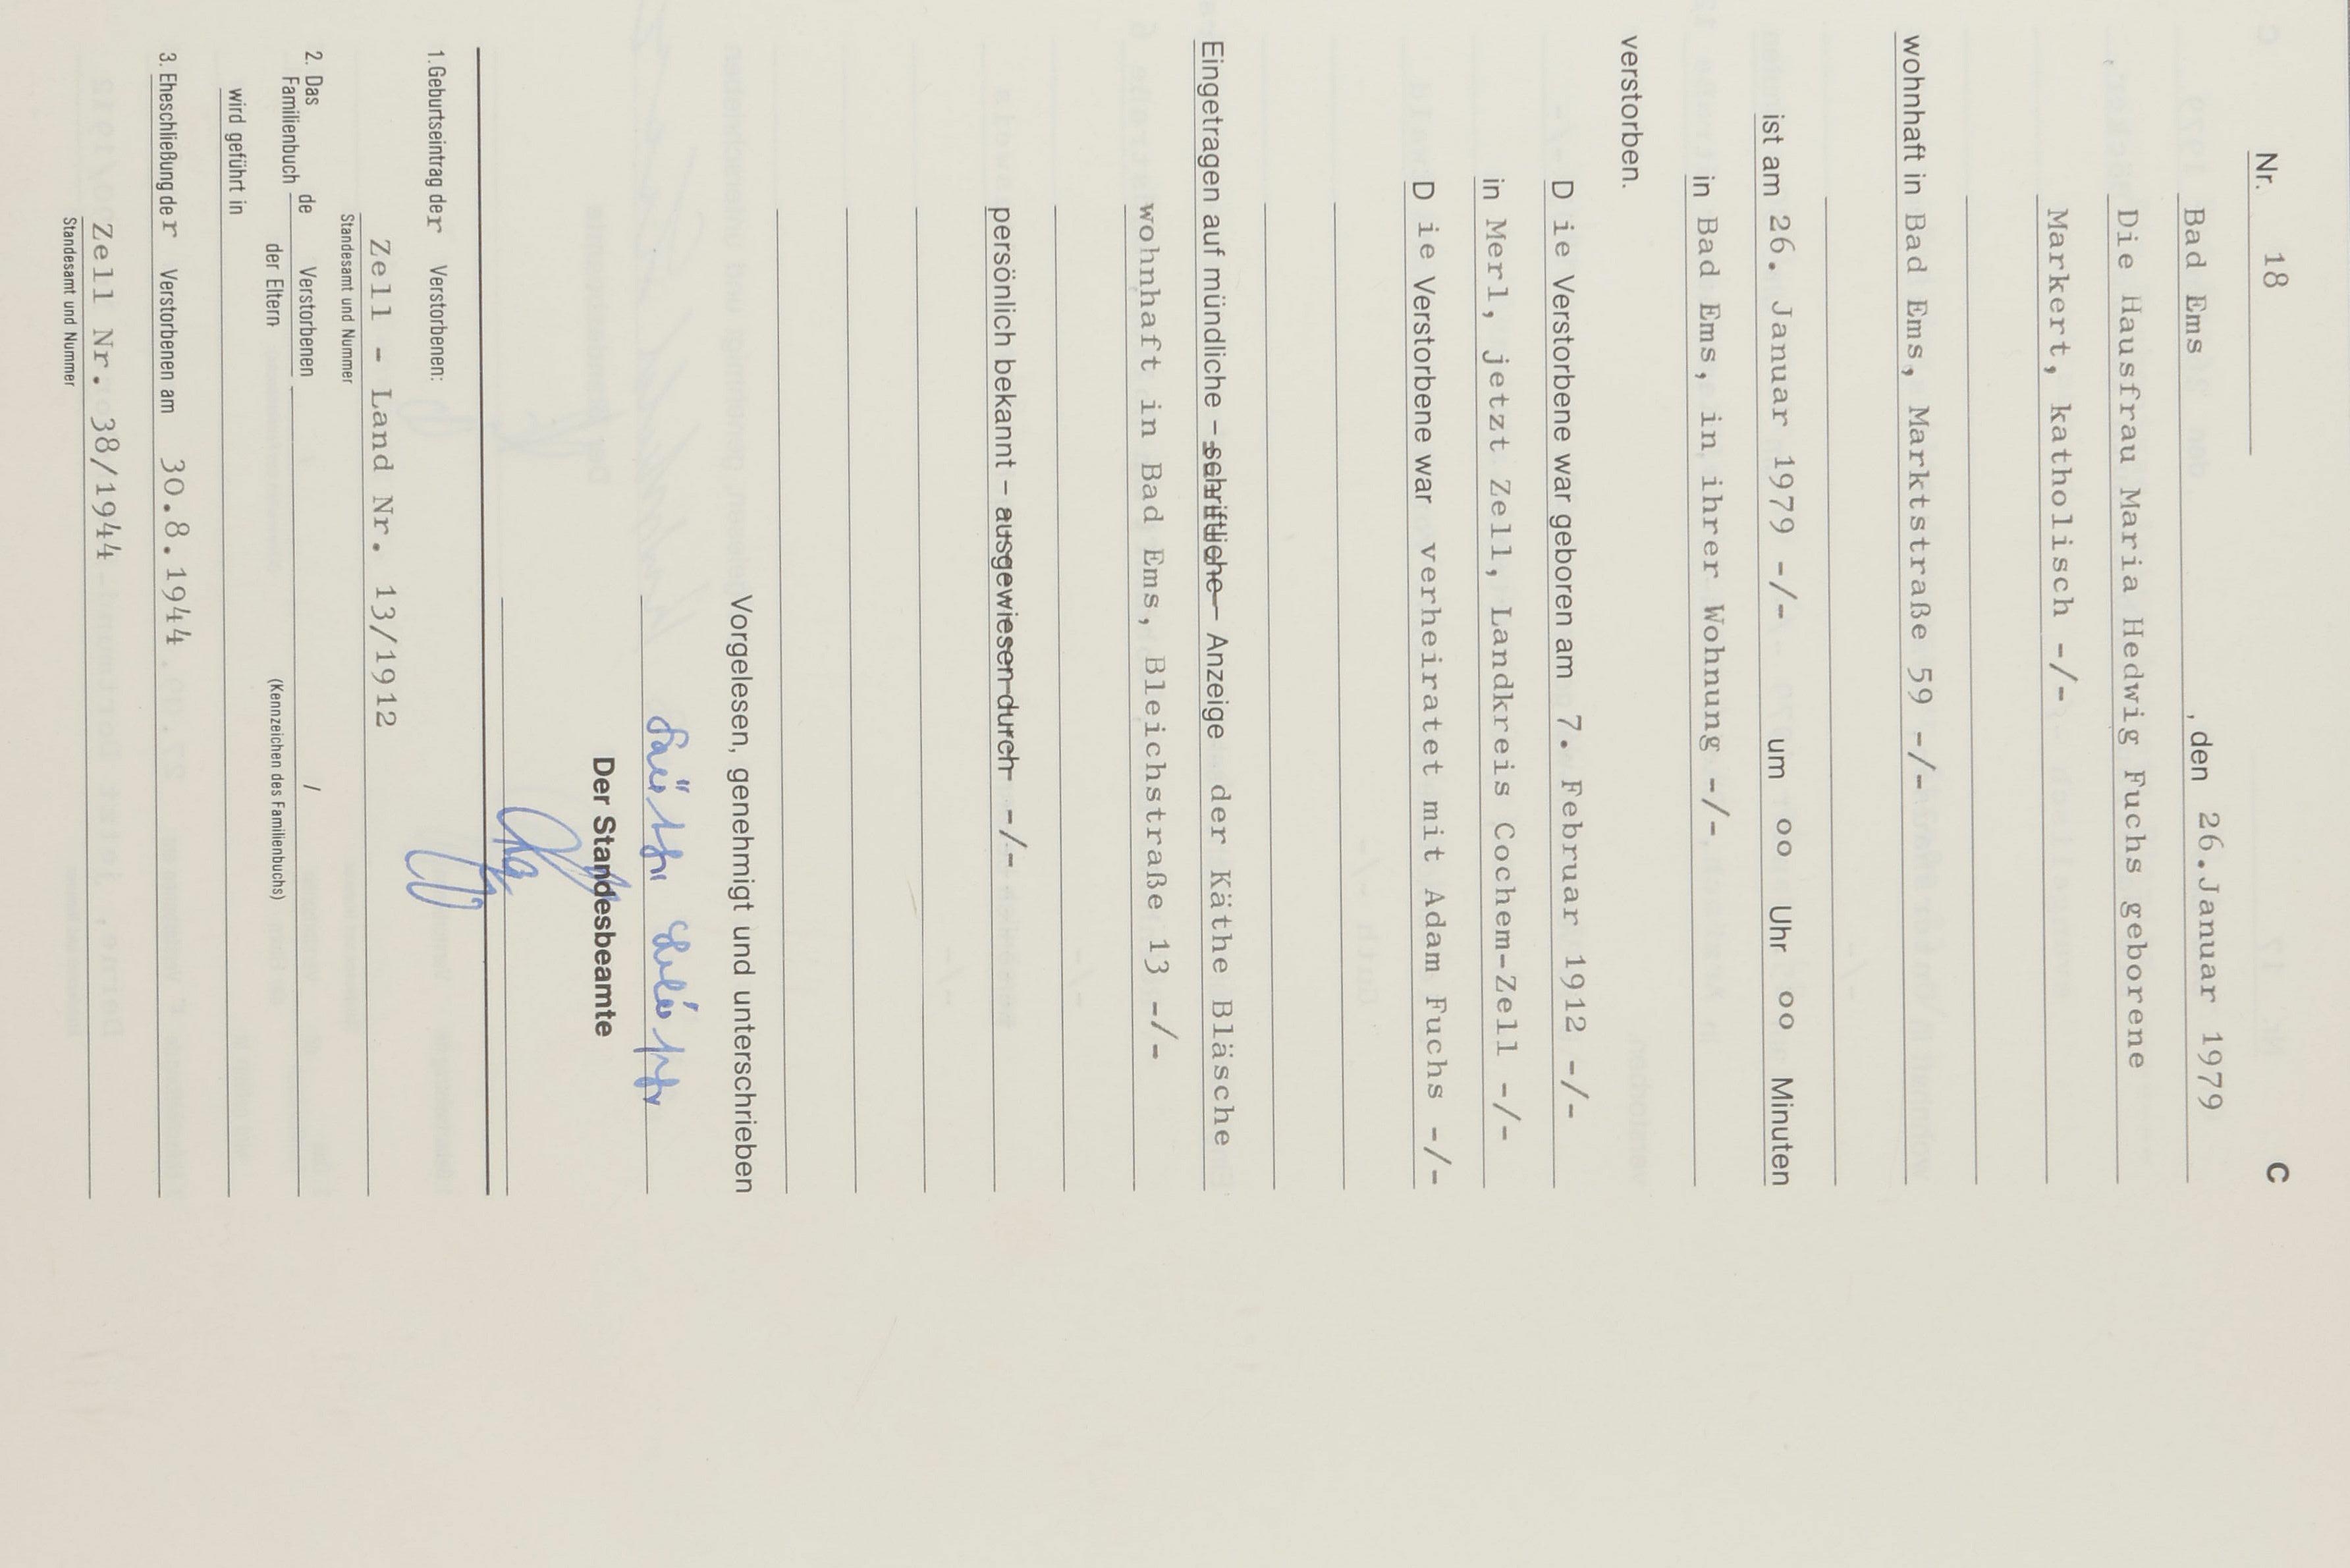 Nr. 18 C
Bad Ems , den 26.Januar 1979
Die Hausfrau Maria Hedwig Fuchs geborene
Markert, katholisch -/-
wohnhaft in Bad Ems, Marktstraße 59 -/-
ist am 26. Januar 1979 -/- um oo Uhr oo Minuten
in Bad Ems, in ihrer Wohnung -/-
verstorben.
D ie Verstorbene war geboren am 7. Februar 1912 -/-
in Merl, jetzt Zell, Landkreis Cochem-Zell -/-
D ie Verstorbene war verheiratet mit Adam Fuchs -/-
Eingetragen auf mündliche – schriftliche – Anzeige der Käthe Bläsche
wohnhaft in Bad Ems, Bleichstraße 13 -/-
persönlich bekannt – ausgewiesen durch -/-
Vorgelesen, genehmigt und unterschrieben
Der Standesbeamte
1. Geburtseintrag der Verstorbenen:
Zell - Land Nr. 13/1912
Standesamt und Nummer
2. Das Familienbuch de Verstorbenen /
der Eltern (Kennzeichen des Familienbuchs)
wird geführt in
3. Eheschließung der Verstorbenen am 30.8.1944
Zell Nr. 38/1944
Standesamt und Nummer